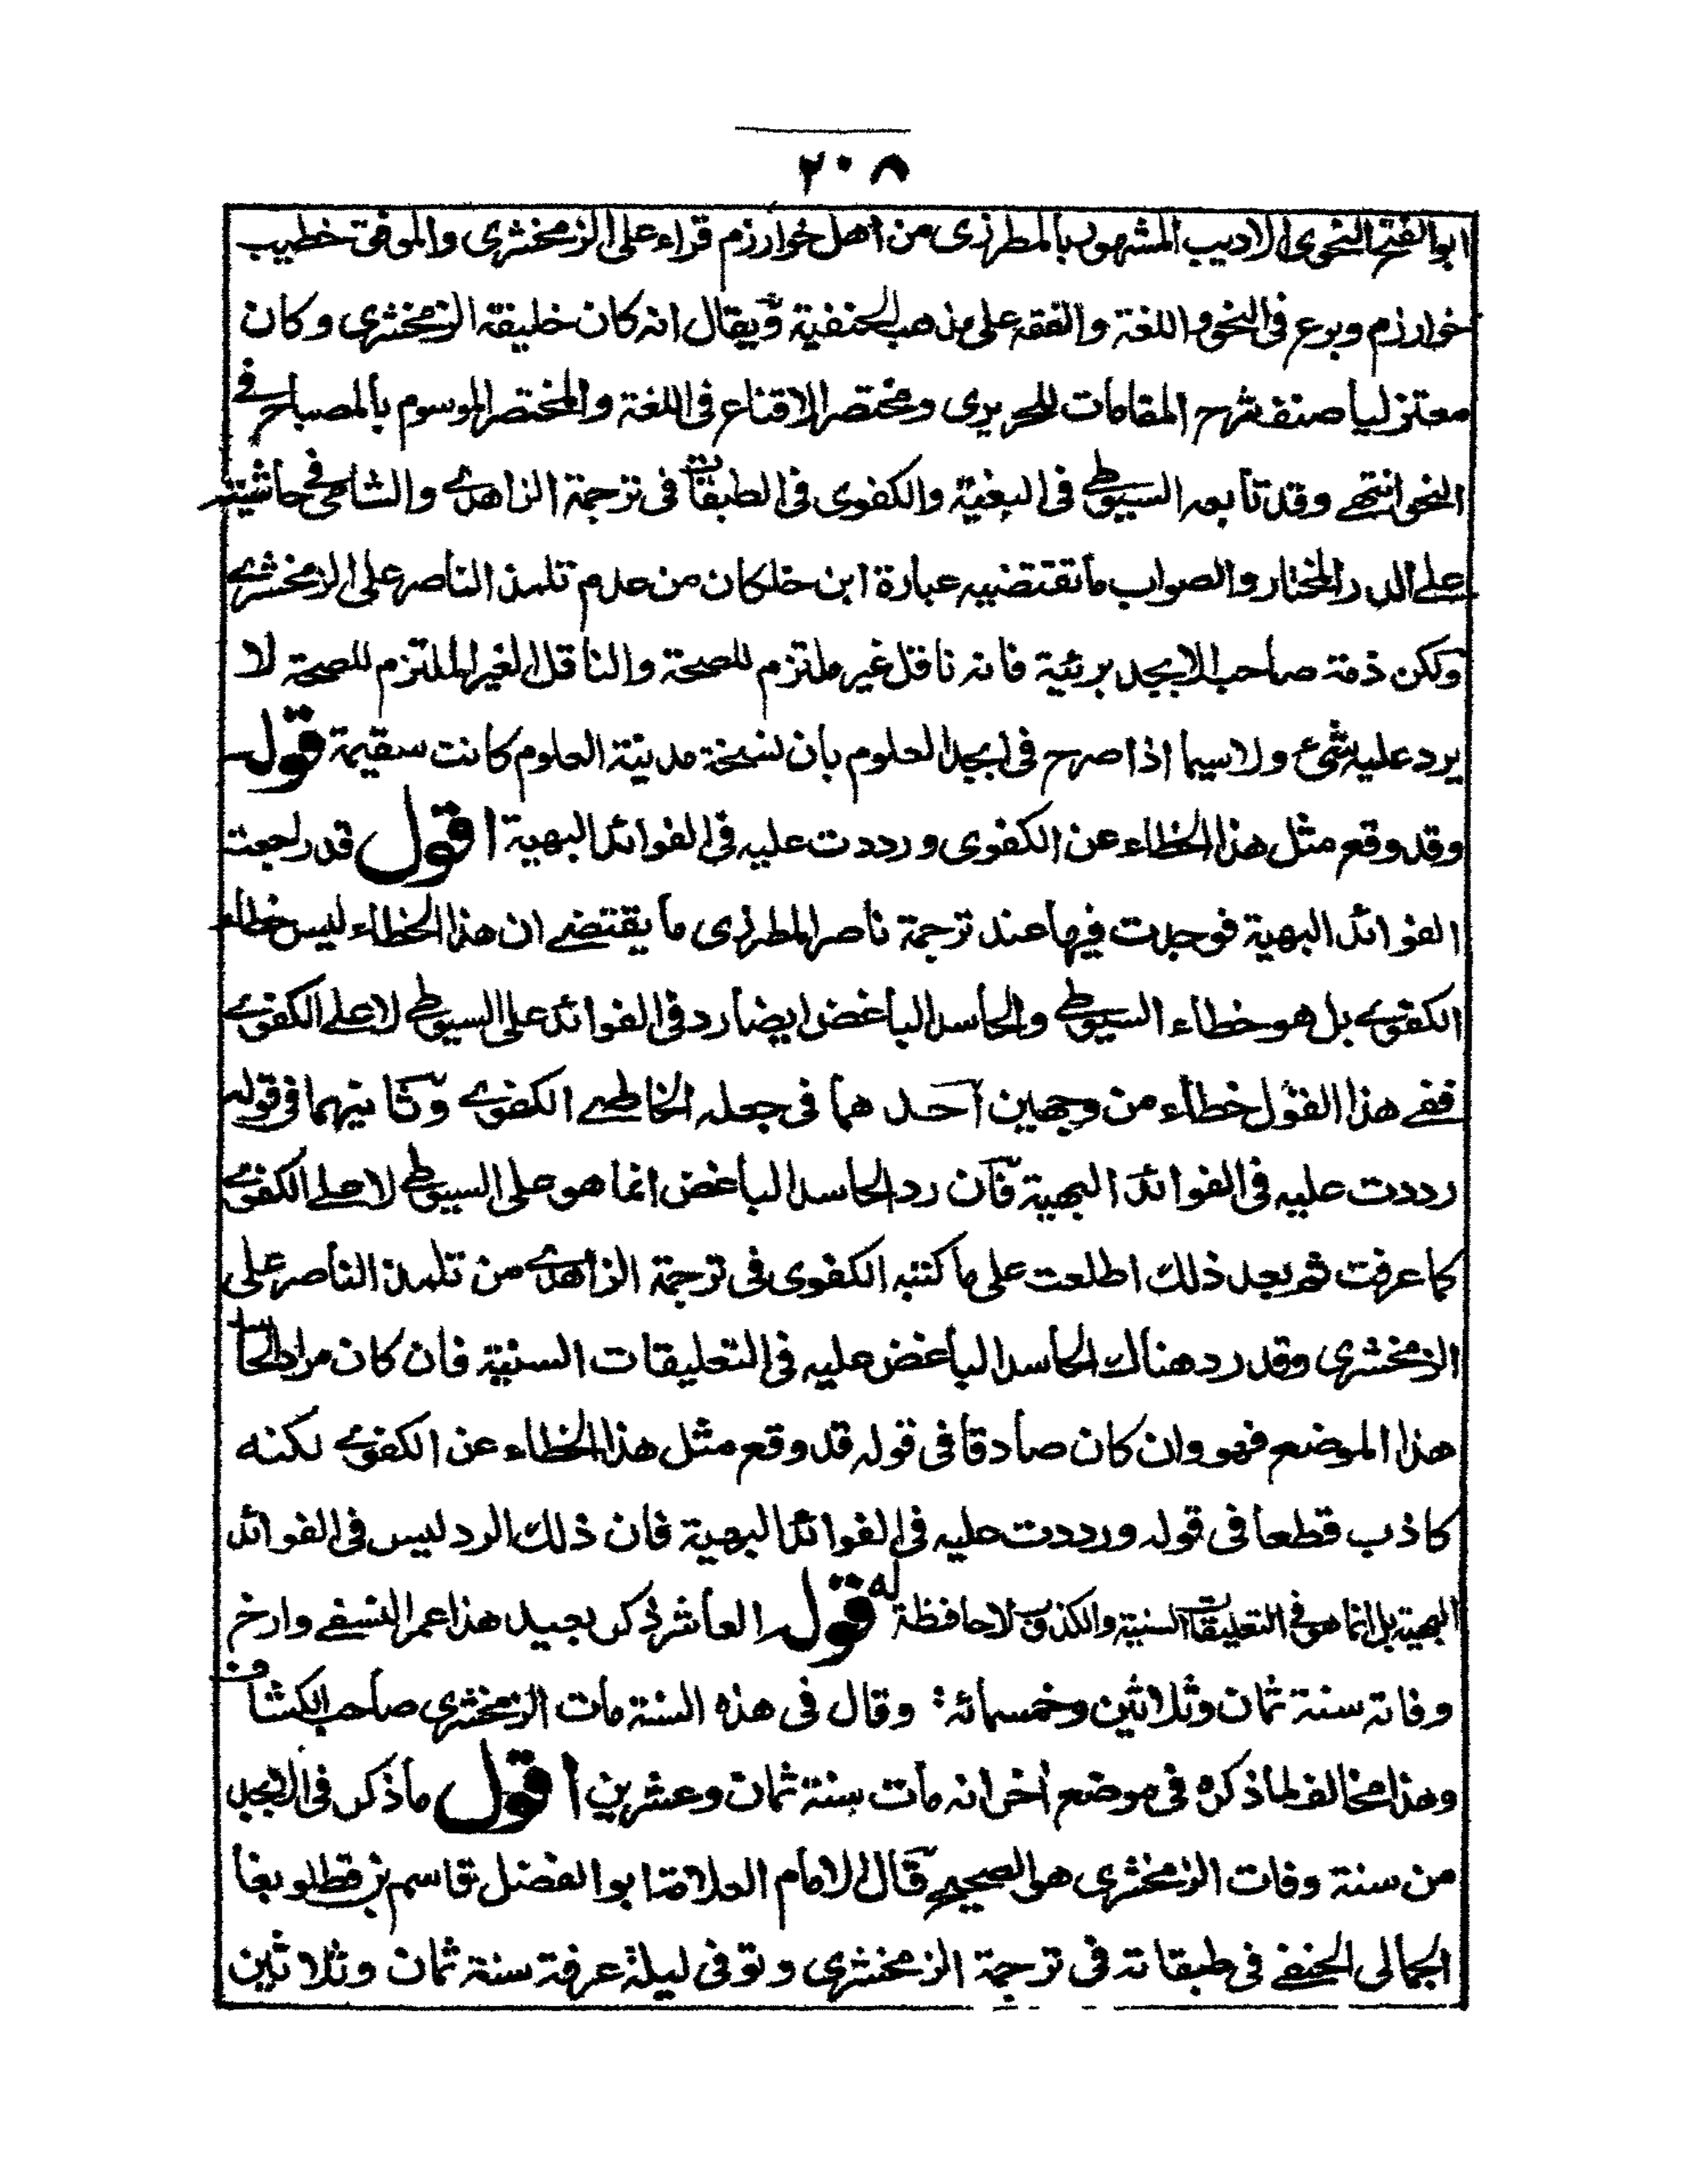 ٢٠٨
ابوالفتح النحوى الاديب المشهور بالمطرزى من اهل خوارزم قراء على الزمخشرى والموفق خطيب
خوارزم وبرع فى النحو واللغة والفقه على مذهب الحنفية ويقال انه كان خليفة الزمخشرى وكان
معتزليا صنف شرح المقامات للحريرى ومختصر الاقناع فى اللغة والمختصر الموسوم بالمصباح فى
النحو انتهى وقد تابعه السيوطى فى البغية والكفوى فى الطبقات فى ترجمة الزاهدى والشامى فى حاشيته
على الدر المختار والصواب ما تقتضيه عبارة ابن خلكان من عدم تلمذ الناصر على الزمخشرى
ولكن ذمة صاحب الابجد بريئة فانه ناقل غير ملتزم للصحة والناقل الغير الملتزم للصحة لا
يرد عليه شئ ولاسيما اذا صرح فى ابجد العلوم بان نسخة مدينة العلوم كانت سقيمة قوله
وقد وقع مثل هذا الخطاء عن الكفوى ورددت عليه فى الفوائد البهية اقول قد راجعت
الفوائد البهية فوجدت فيها عند ترجمة ناصر المطرزى ما يقتضى ان هذا الخطاء ليس خطاء
الكفوى بل هو خطاء السيوطى والحاسد الباغض ايضا رد فى الفوائد على السيوطى لا على الكفوى
ففى هذا القول خطاء من وجهين احدهما فى جعله الخاطى الكفوى وثانيهما فى قوله
رددت عليه فى الفوائد البهية فان رد الحاسد الباغض انما هو على السيوطى لا على الكفوى
كما عرفت ثم بعد ذلك اطلعت على ما كتبه الكفوى فى ترجمة الزاهدى من تلمذ الناصر على
الزمخشرى وقد رد هناك الحاسد الباغض عليه فى التعليقات السنية فان كان مراد الحاسد
هذا الموضع فهو وان كان صادقا فى قوله قد وقع مثل هذا الخطاء عن الكفوى لكنه
كاذب قطعا فى قوله ورددت عليه فى الفوائد البهية فان ذلك الرد ليس فى الفوائد
البهية بل انما هو فى التعليقات السنية والكذوب لا حافظة له قوله العاشر ذكر بعيد هذا عمر النسفى وارخ
وفاته سنة ثمان وثلاثين وخمسمائة وقال فى هذه السنة مات الزمخشرى صاحب الكشاف
وهذا مخالف لما ذكره فى موضع اخر انه مات سنة ثمان وعشرين اقول ما ذكر فى الابجد
من سنة وفات الزمخشرى هو الصحيح قال الامام العلامة ابو الفضل قاسم بن قطلوبغا
الجمالى الحنفى فى طبقاته فى ترجمة الزمخشرى وتوفى ليلة عرفة سنة ثمان وثلاثين